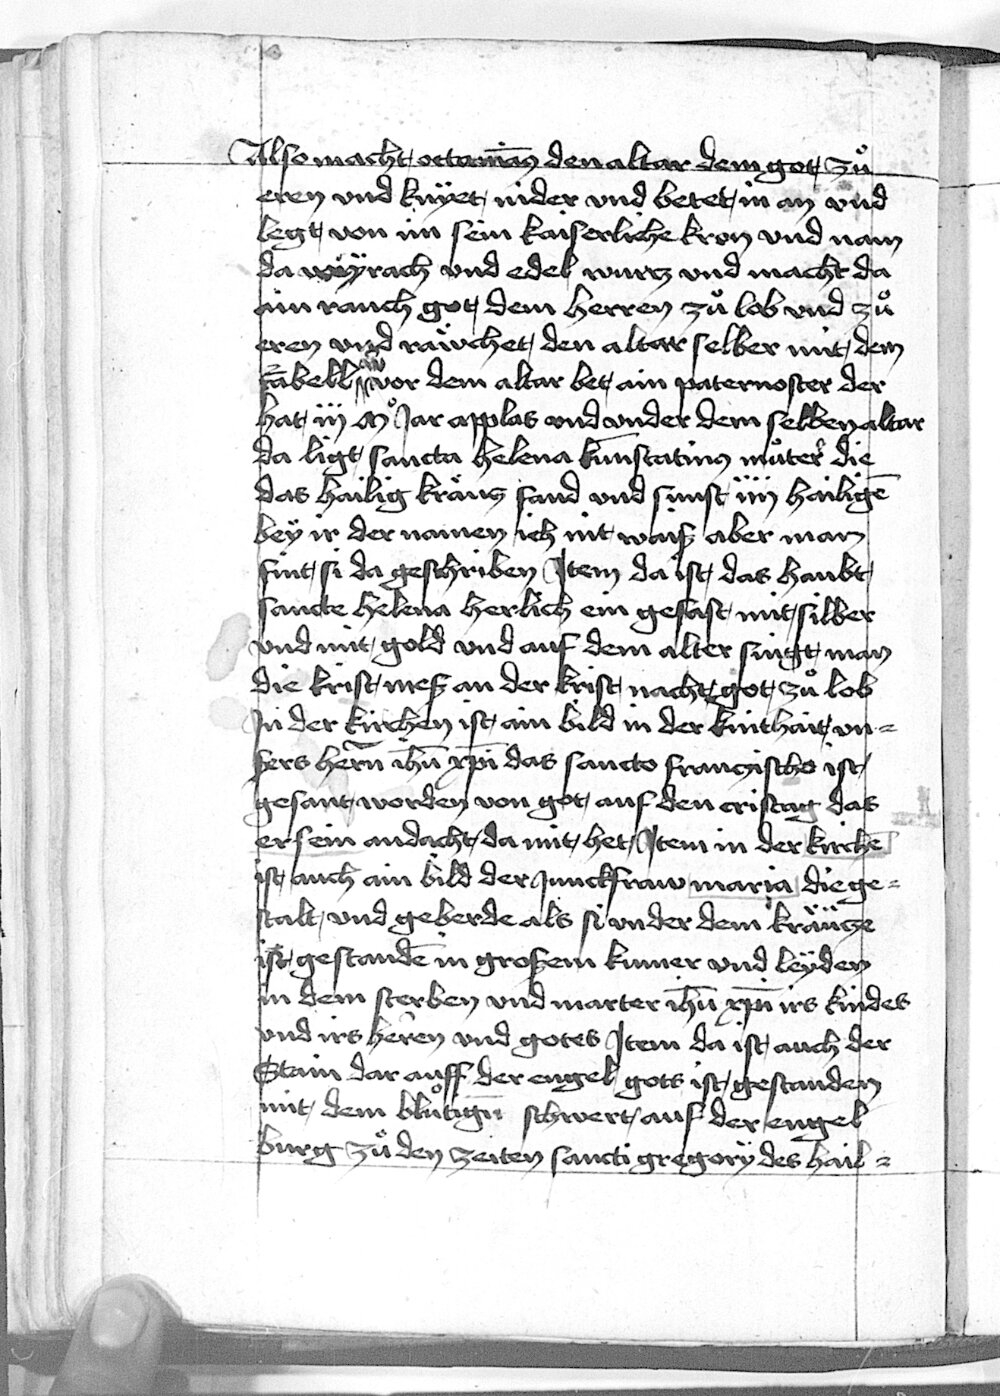 Also macht octauianus den altar dem got zů
eren vnd knÿet nider vnd betet in an vnd
legt von im sein kaiserliche kron vnd nam
da weÿrach vnd edel wurcz vnd macht da
ain rauch got dem herren zů lob vnd zů
eren vnd räwchet den altar selber mit dem
vor dem altar bet ain paternoster der
hat iij Mͦ Jar applas vnd vnder dem selben altar
da ligt sancta helena kunstatinus můter die
das hailig kräucz fand vnd sunst iiij hailigē
beÿ ir der namen ich nit waiß aber man
fint si da geschriben Item da ist das haubt
sancte helena herlich ein gefast mit silber
vnd mit gold vnd auf dem alter singt man
die krist meß an der krist nacht got zů lob
In der kirchen ist ain bild in der kinthait vn=
sers hern̄ ih̄u xp̄i das sancto franczischo ist
gesant worden von got auf den cristag das
er sein andacht da mit het Item in der kirchē
ist auch ain bild der Junckfraw maria die ge=
stalt vnd geberde als si vnder dem kräücze
ist gestandē in großem kumer vnd leÿden
in dem sterben vnd marter ih̄u xp̄i irs kindes
vnd irs heren vnd gotes Item da ist auch der
Stain dar auff der engel gots ist gestanden
mit dem blůtign̄ schwert auf der engel
burg zů den zeiten sancti gregorÿ des hail=